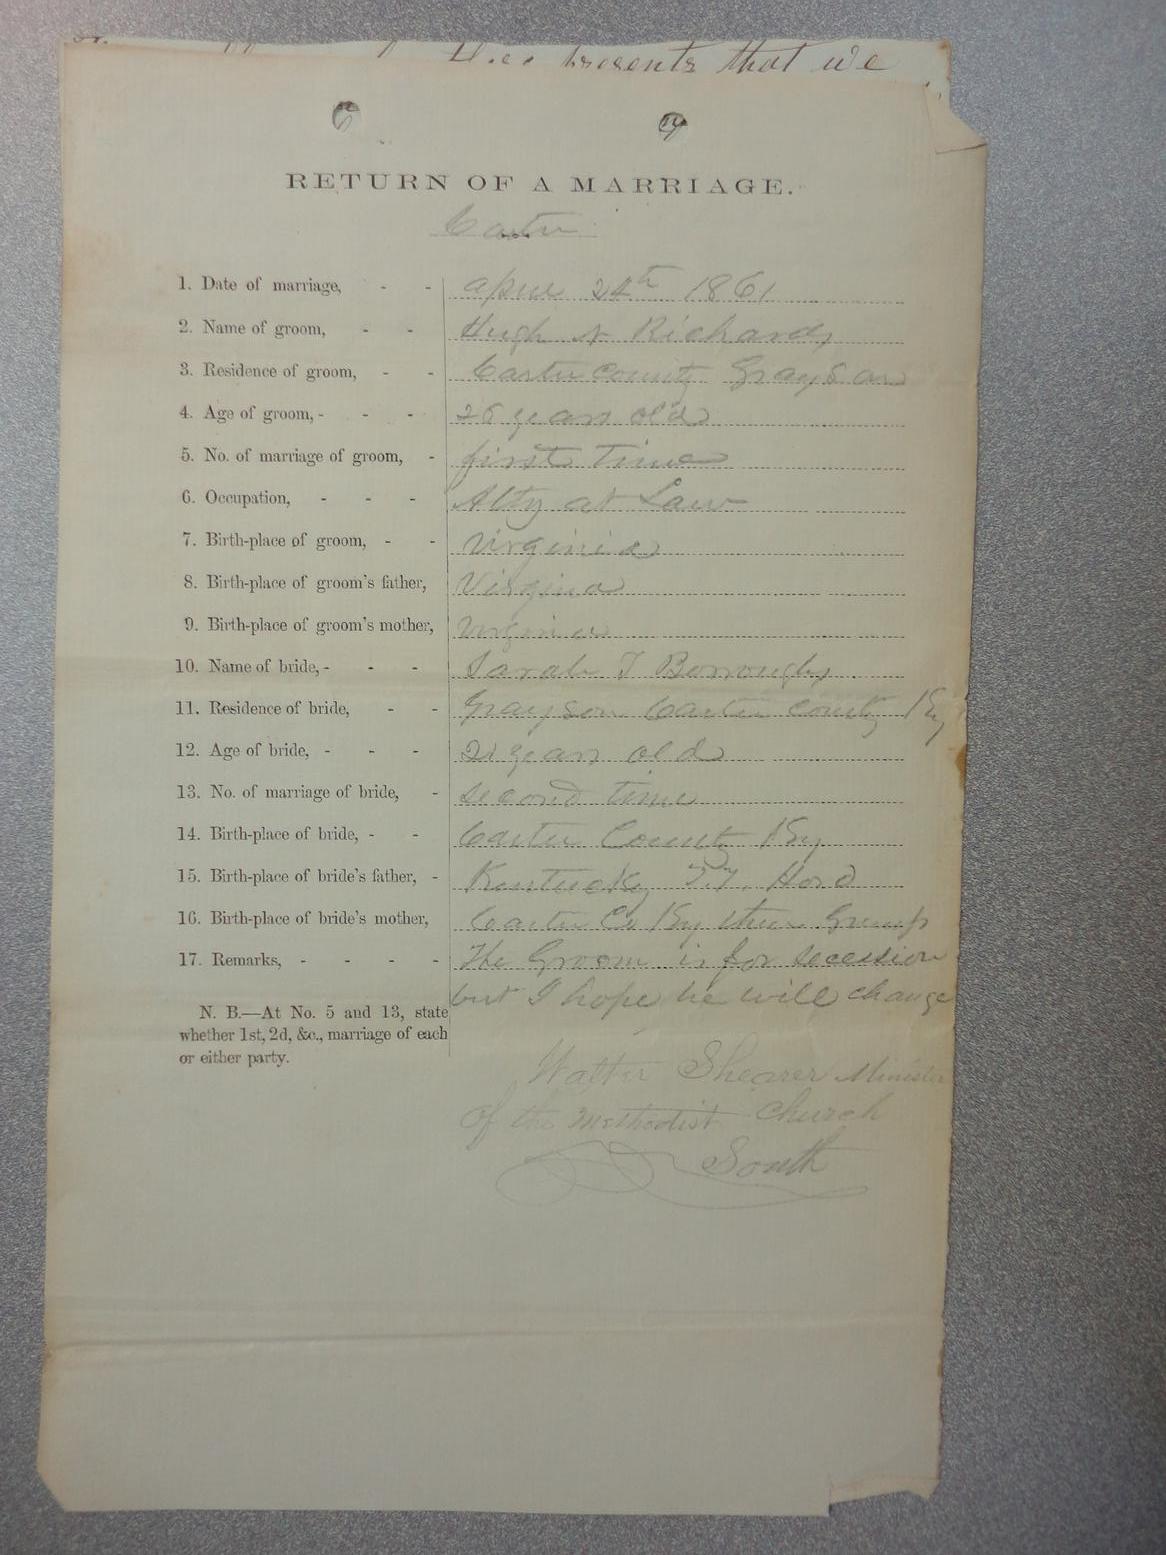 presents that we
RETURN OF A MARRIAGE.
Carter
1. Date of marriage, - - April 24th 1861
2. Name of groom, - - Hugh Richards
3. Residence of groom, - - Carter County Grayson
4. Age of groom, - - - 26 years old
5. No. of marriage of groom, - first time
6. Occupation, - - - Atty at Law
7. Birth-place of groom, - - Virginia
8. Birth-place of groom's father, Virgina
9. Birth-place of groom's mother, Virginia
10. Name of bride, - - - Sarah T Borroughs
11. Residence of bride, - - Grayson Carter County Ky
12. Age of bride, - - - 21 years old
13. No. of marriage of bride, - second time
14. Birth-place of bride, - - Carter County Ky
15. Birth-place of bride's father, - Kentucky T.T. Hord
16. Birth-place of bride's mother, Carter Co Ky
17. Remarks, - - - - The Groom is for secession
but I hope he will change
N. B.—At No. 5 and 13, state
whether 1st, 2d, &c., marriage of each
or either party.
Walter Shearer Minister
of the Methodist Church
South